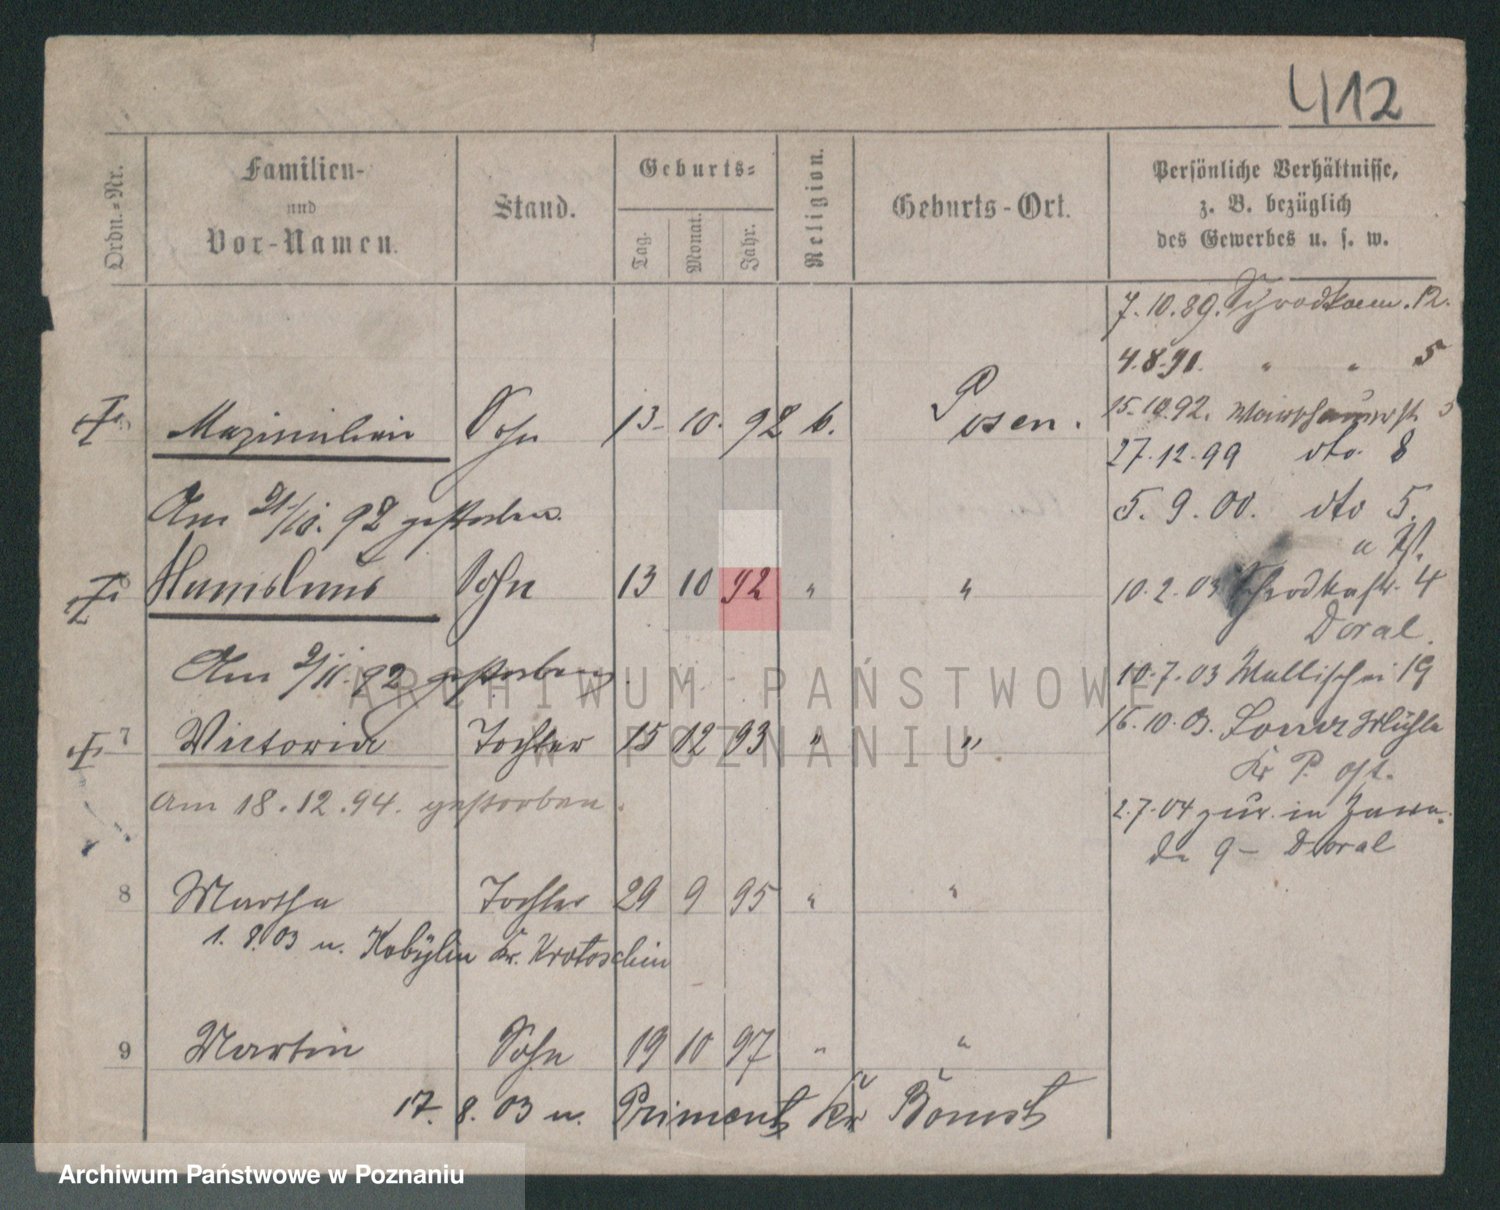 412
Ordn.-Nr.
Familien-
und
Vor-Namen.
Stand.
Geburts-
Tag.
Monat.
Jahr.
Religion.
Geburts-Ort.
Persönliche Verhältnisse,
z. B. bezüglich
des Gewerbes u. s. w.
7.10.89. 12.
4.8.91. " " 5
5 Maximilian Sohn 13 10. 92 k. Posen.
15.10.92. Warschauerst. 5
27.12.99 dto. 8
Am 21/10. 92 gestorben.
5. 9. 00. dto 5.
Stanislaus Sohn 13 10 92 " "
10.2.03 Schrodkastr. 4
Doral.
Am 9/11. 92 gestorben.
10.7.03 Wallischei 19
7 Victoria Tochter 15 12 93 " "
16.10.03. Mühle
Kr P. ost.
am 18.12.94. gestorben.
2.7.04 zur. in
9 - Doral
8 Martha Tochter 29 9 95 " "
1. 8. 03 n. Kobylin Kr. Krotoschin
9 Martin Sohn 19 10 97 " "
17. 8. 03 n. Priment Kr Bomst
ARCHIWUM PAŃSTWOWE
W POZNANIU
Archiwum Państwowe w Poznaniu